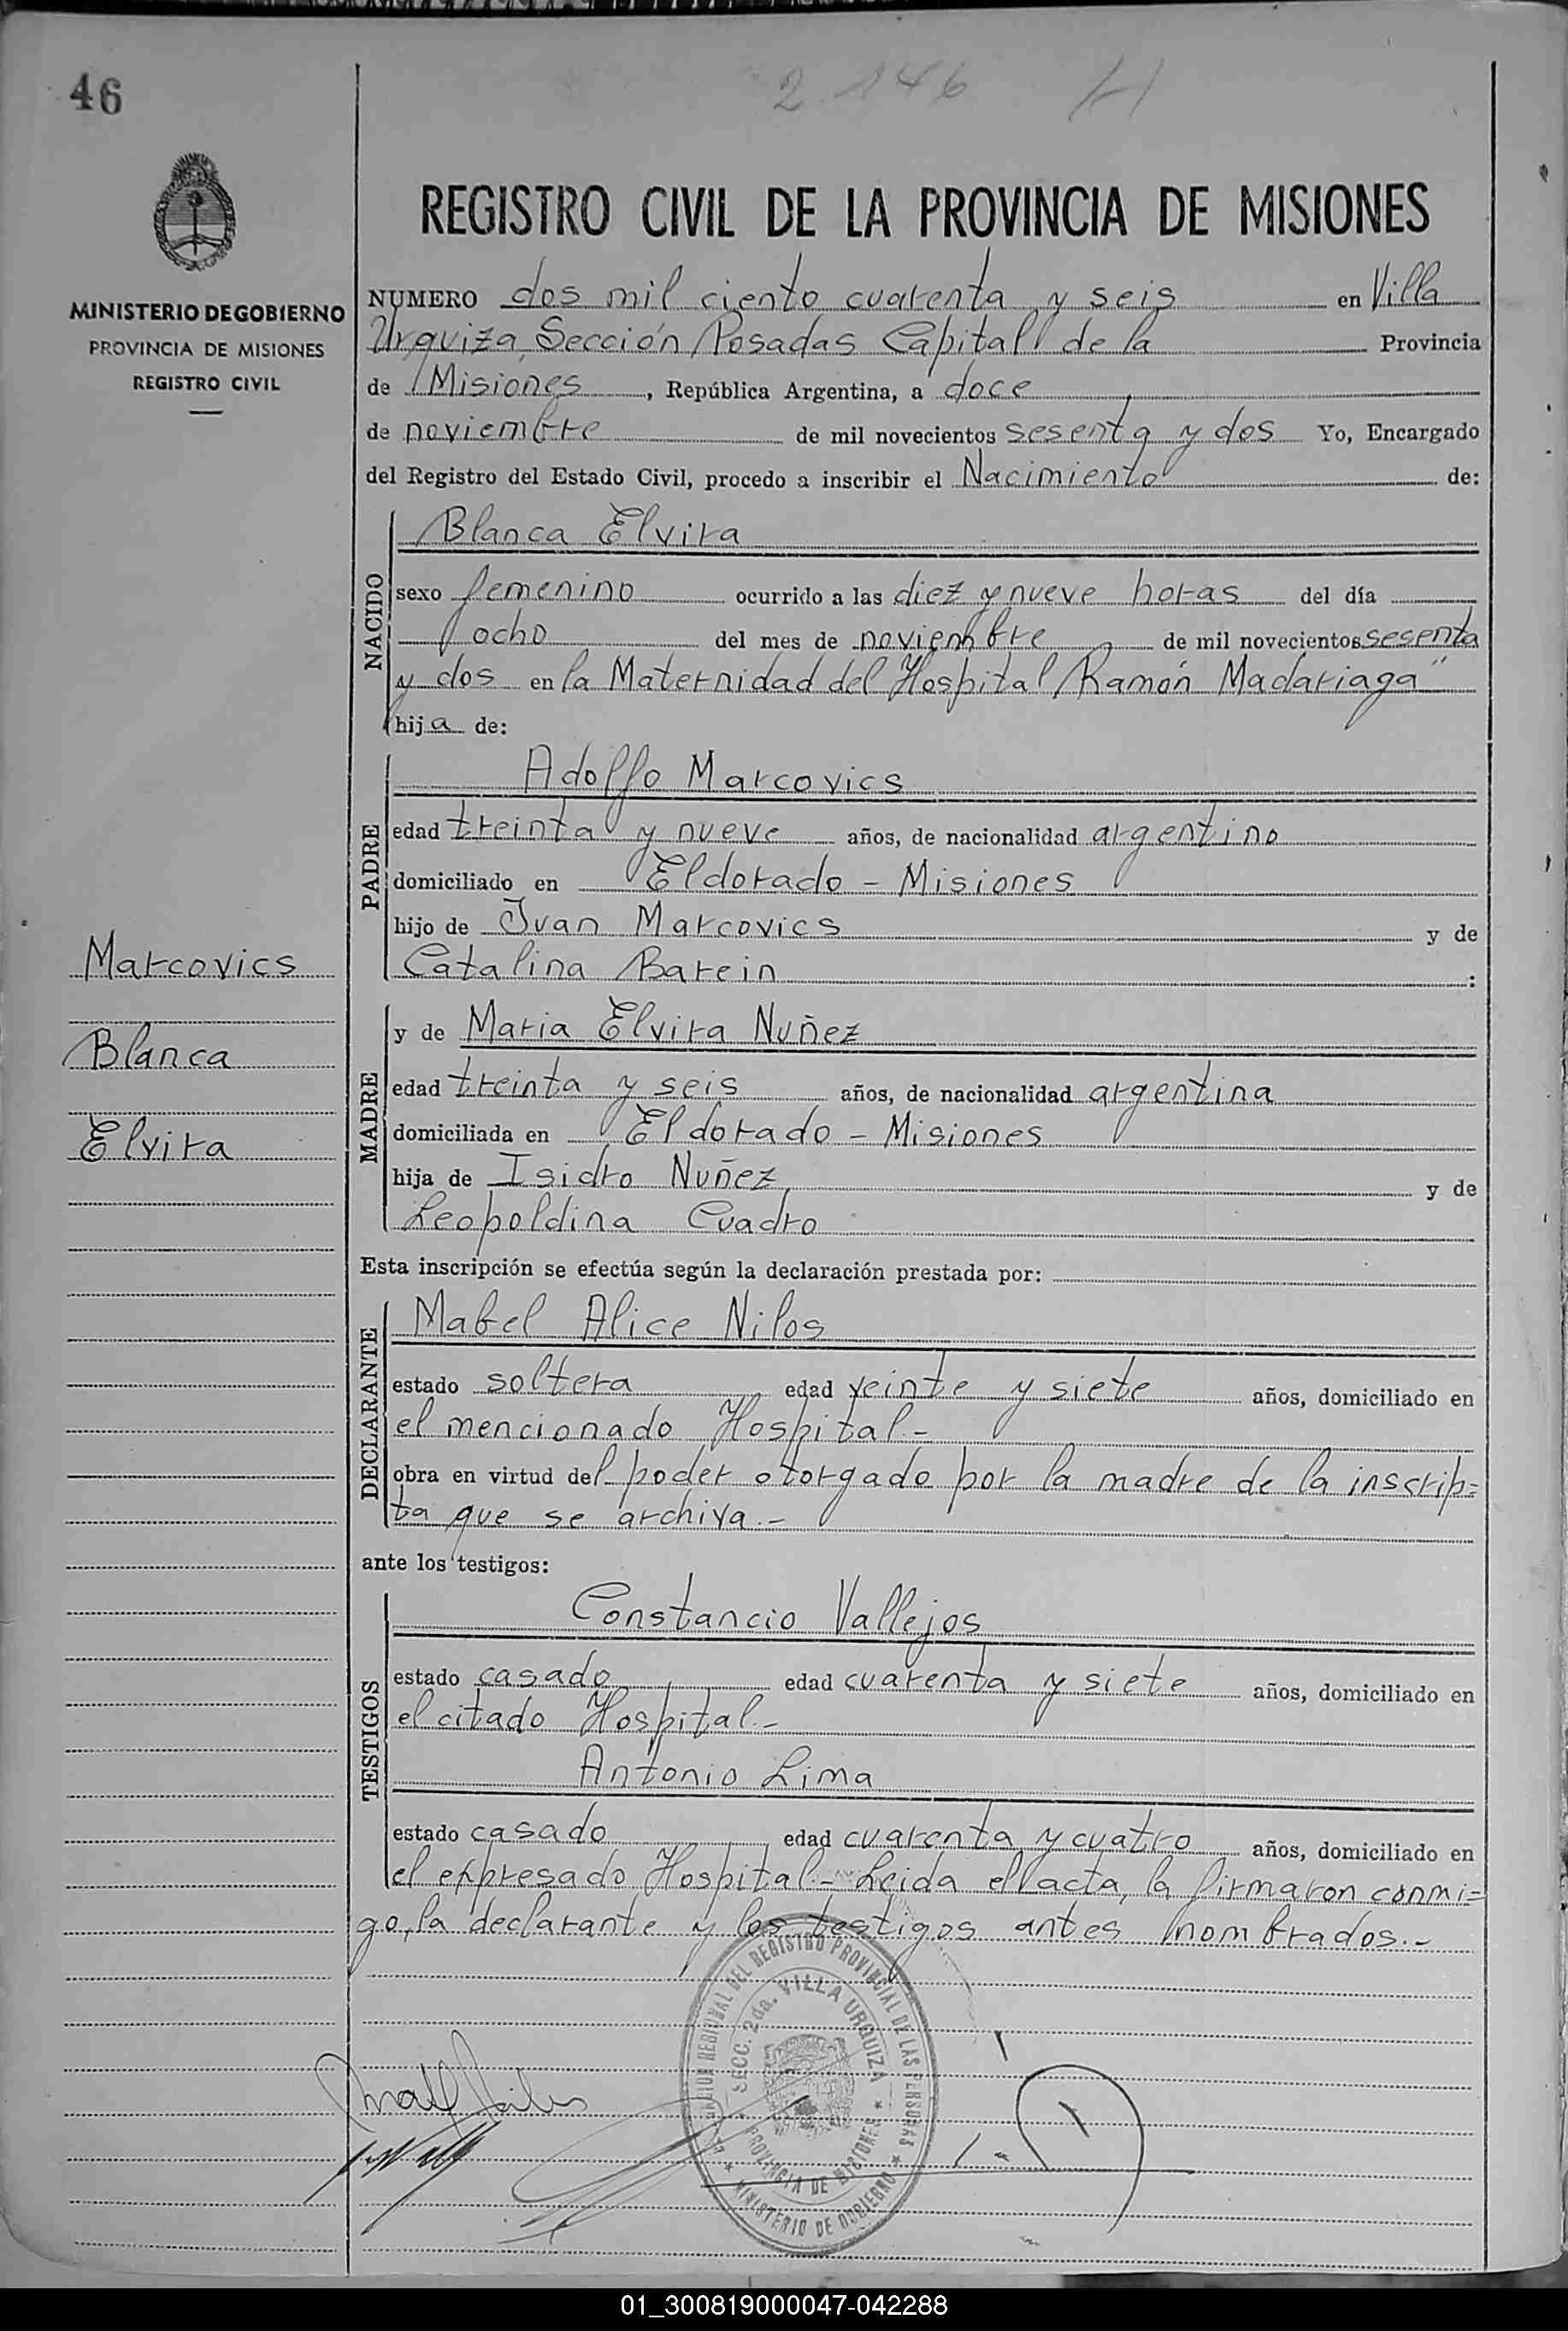 46
2146 H
REGISTRO CIVIL DE LA PROVINCIA DE MISIONES
MINISTERIO DE GOBIERNO
PROVINCIA DE MISIONES
REGISTRO CIVIL
NUMERO dos mil ciento cuarenta y seis en Villa
Urquiza, Sección Posadas Capital de la Provincia
de Misiones, República Argentina, a doce
de noviembre de mil novecientos sesenta y dos Yo, Encargado
del Registro del Estado Civil, procedo a inscribir el Nacimiento de:
NACIDO
Blanca Elvira
sexo femenino ocurrido a las diez y nueve horas del día
ocho del mes de noviembre de mil novecientos sesenta
y dos en la Maternidad del Hospital Ramón Madariaga"
hija de:
PADRE
Adolfo Marcovics
edad treinta y nueve años, de nacionalidad argentino
domiciliado en Eldorado - Misiones
hijo de Juan Marcovics y de
Catalina Barein :
Marcovics
Blanca
Elvira
MADRE
y de Maria Elvira Nuñez
edad treinta y seis años, de nacionalidad argentina
domiciliada en Eldorado - Misiones
hija de Isidro Nuñez y de
Leopoldina Cuadro
Esta inscripción se efectúa según la declaración prestada por:
DECLARANTE
Mabel Alice Nilos
estado soltera edad veinte y siete años, domiciliado en
el mencionado Hospital.-
obra en virtud del poder otorgado por la madre de la inscrip=
ta que se archiva.-
ante los testigos:
TESTIGOS
Constancio Vallejos
estado casado edad cuarenta y siete años, domiciliado en
el citado Hospital.-
Antonio Lima
estado casado edad cuarenta y cuatro años, domiciliado en
el expresado Hospital.- Leida el acta, la firmaron conmi=
go, la declarante y los testigos antes nombrados.-
DEL REGISTRO PROVINCIAL DE LAS PERSONAS
SECC. 2da. VILLA URQUIZA
PROVINCIA DE MISIONES
MINISTERIO DE GOBIERNO
01_300819000047-042288